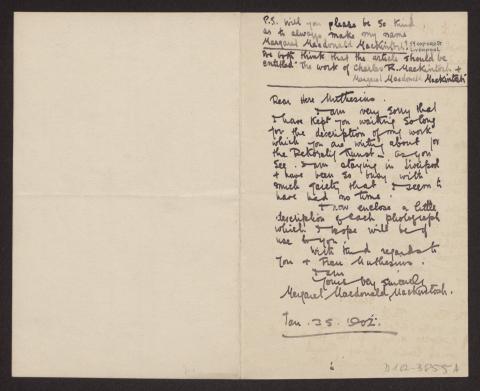 P.S. will you please be so kind
as to always make my name
Margaret Macdonald Mackintosh.
We both think that the article should be
entitled "The work of Charles R. Mackintosh +
Margaret Macdonald Mackintosh"
Dear Herr Muthesius.
I am very sorry that
I have kept you waiting so long
for the description of my work
which you are writing about for
the Dekorativ Kunst. as you
see. I am staying in Liverpool
+ have been so busy with
much gaiety that I seem to
have had no time.
I now enclose a little
description of each photograph
which I hope will be of
use to you.
With kind regards to
you + Frau Muthesius.
I am
Yours very sincerely
Margaret Macdonald Mackintosh.
Jan. 25. 1902.
D 102-3855A